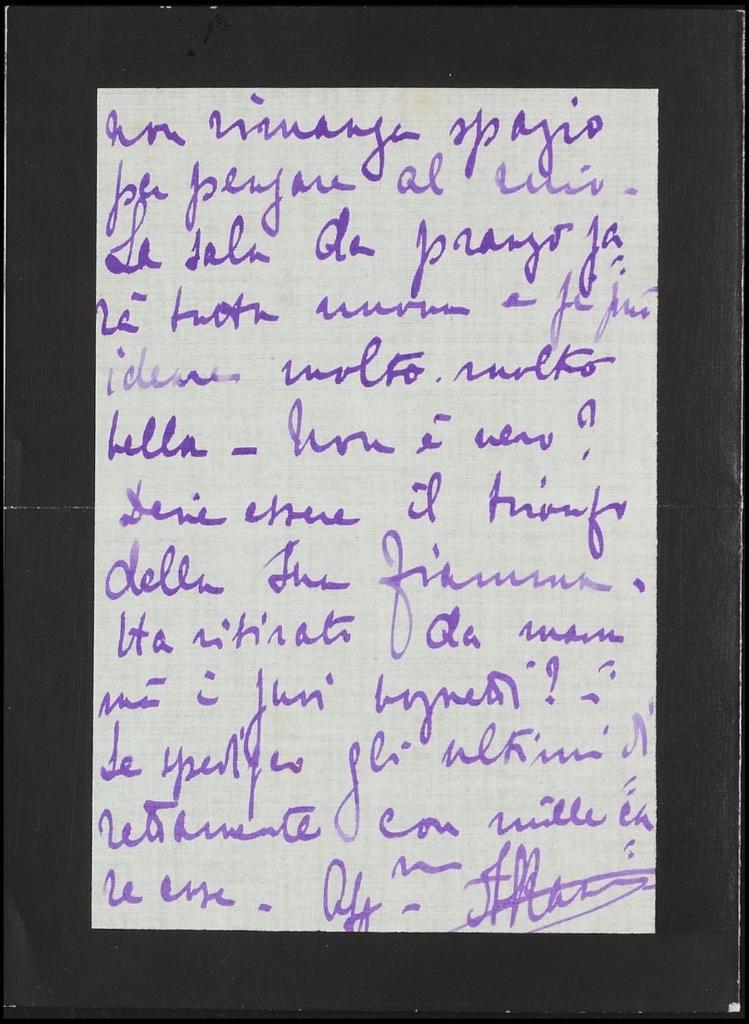 non rimanga spazio
per pensare al mio.
La sala da pranzo sa
rà tutta nuova e
molto molto
bella – Non è vero?
Deve essere il trionfo
della Sua fiamma.
Ha ritirato da mam
mà i suoi sognetti? –
Le spedisco gli ultimi di
rettamente con mille ca
rezze. Aff.ma